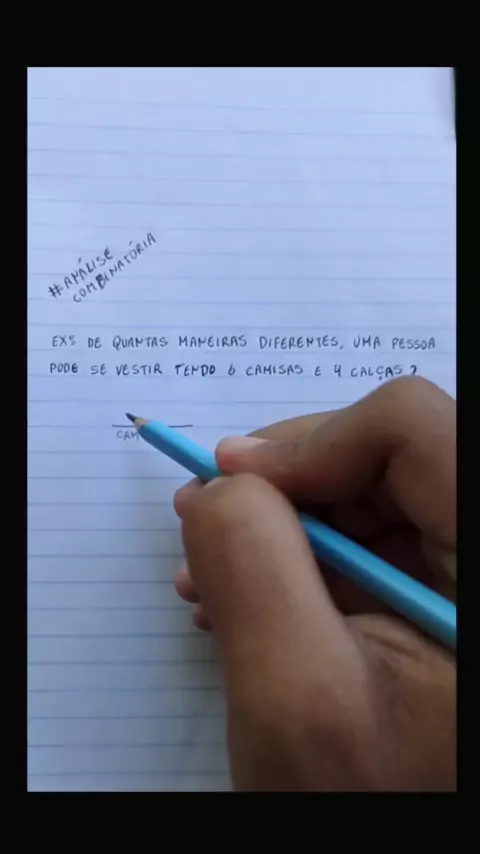 #ANÁLISE
COMBINATÓRIA
EX: DE QUANTAS MANEIRAS DIFERENTES, UMA PESSOA
PODE SE VESTIR TENDO 6 CAMISAS E 4 CALÇAS?
CAM